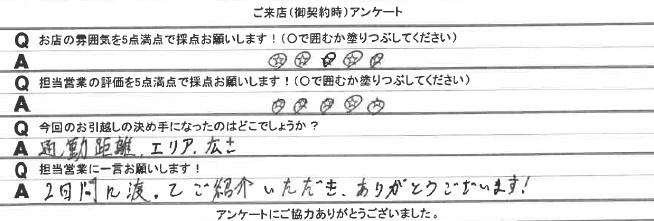 ご来店(御契約時)アンケート
Q お店の雰囲気を5点満点で採点お願いします!(○で囲むか塗りつぶしてください)
A ☆☆☆☆☆
Q 担当営業の評価を5点満点で採点お願いします!(○で囲むか塗りつぶしてください)
A ☆☆☆☆☆
Q 今回のお引越しの決め手になったのはどこでしょうか?
A 通勤距離、エリア、広さ
Q 担当営業に一言お願いします!
A 2回間に渡ってご紹介いただき、ありがとうございます!
アンケートにご協力ありがとうございました。